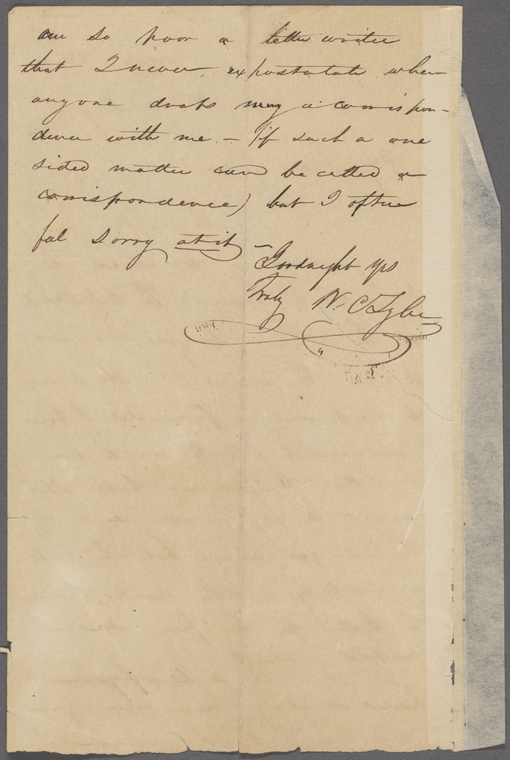 am so poor a letter writer
that I never expostulate when
anyone drops my correspon-
dence with me - (if such a one
sided matter can be called a
correspondence) but I often
feel sorry at it -
Goodnight yrs
Truly W. C. Tyler